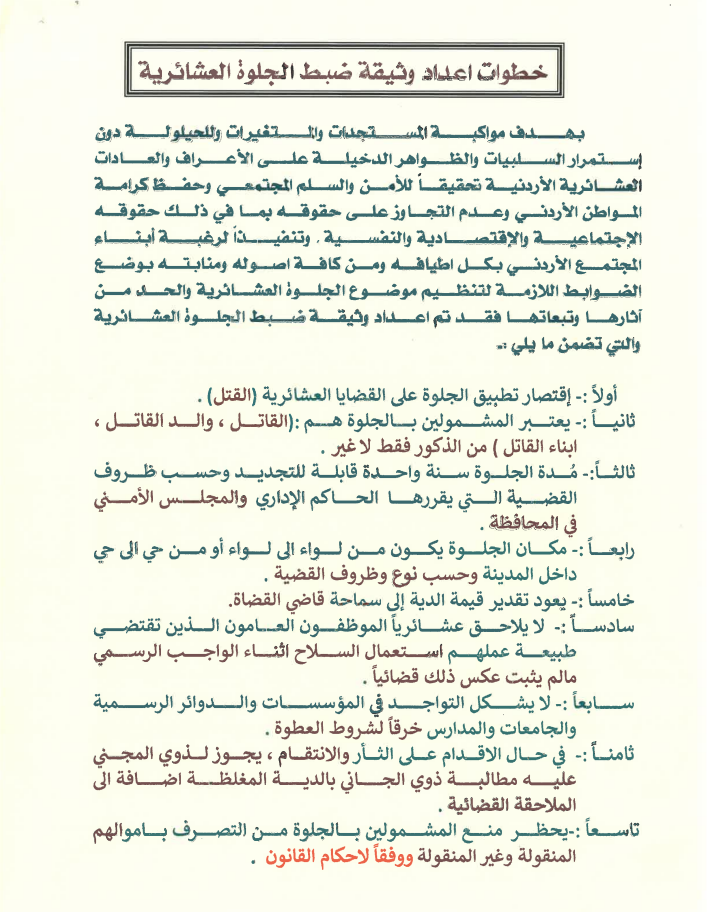 خطوات اعداد وثيقة ضبط الجلوة العشائرية
بهدف مواكبة المستجدات والمتغيرات وللحيلولة دون
إستمرار السلبيات والظواهر الدخيلة على الأعراف والعادات
العشائرية الأردنية تحقيقاً للأمن والسلم المجتمعي وحفظ كرامة
المواطن الأردني وعدم التجاوز على حقوقه بما في ذلك حقوقه
الإجتماعية والإقتصادية والنفسية . وتنفيذاً لرغبة أبناء
المجتمع الأردني بكل اطيافه ومن كافة اصوله ومنابته بوضع
الضوابط اللازمة لتنظيم موضوع الجلوة العشائرية والحد من
آثارها وتبعاتها فقد تم اعداد وثيقة ضبط الجلوة العشائرية
والتي تضمن ما يلي :-
أولاً :- إقتصار تطبيق الجلوة على القضايا العشائرية (القتل) .
ثانياً :- يعتبر المشمولين بالجلوة هم :(القاتل ، والد القاتل ،
ابناء القاتل ) من الذكور فقط لا غير .
ثالثاً:- مُدة الجلوة سنة واحدة قابلة للتجديد وحسب ظروف
القضية التي يقررها الحاكم الإداري والمجلس الأمني
في المحافظة .
رابعاً :- مكان الجلوة يكون من لواء الى لواء أو من حي الى حي
داخل المدينة وحسب نوع وظروف القضية .
خامساً :- يعود تقدير قيمة الدية إلى سماحة قاضي القضاة.
سادساً :- لا يلاحق عشائرياً الموظفون العامون الذين تقتضي
طبيعة عملهم استعمال السلاح اثناء الواجب الرسمي
مالم يثبت عكس ذلك قضائياً .
سابعاً :- لا يشكل التواجد في المؤسسات والدوائر الرسمية
والجامعات والمدارس خرقاً لشروط العطوة .
ثامناً :- في حال الاقدام على الثأر والانتقام ، يجوز لذوي المجني
عليه مطالبة ذوي الجاني بالدية المغلظة اضافة الى
الملاحقة القضائية .
تاسعاً :-يحظر منع المشمولين بالجلوة من التصرف باموالهم
المنقولة وغير المنقولة ووفقاً لاحكام القانون .